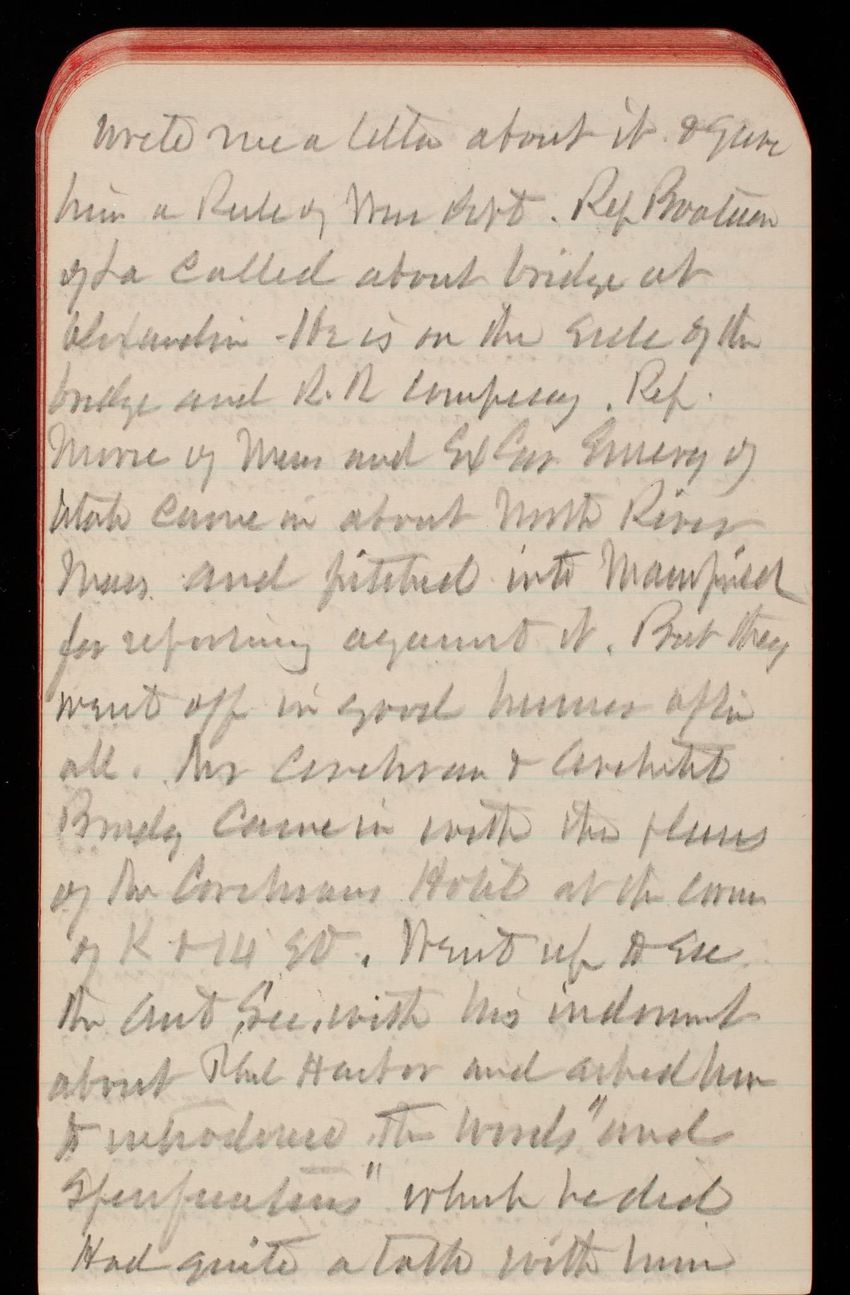 wrote me a letter about it & gave
him a Rule of War Dept. Rep Boatner
of La called about bridge at
Alexandria - He is on the side of the
bridge and R.R company. Rep.
Morse of Mass and Ex Gov Emery of
Utah came in about North River
Mass and pitched into Mansfield
for reporting against it. But they
went off in good humor after
all. Mr Corchran & Architect
Brady came in with the plans
of the Corchrans Hotel at the corner
of K & 14 St. Went up to see
the Asst Sec. with his indorsmt
about Phil Harbor and asked him
to introduce the words "and
Specifications" which he did
Had quite a talk with him